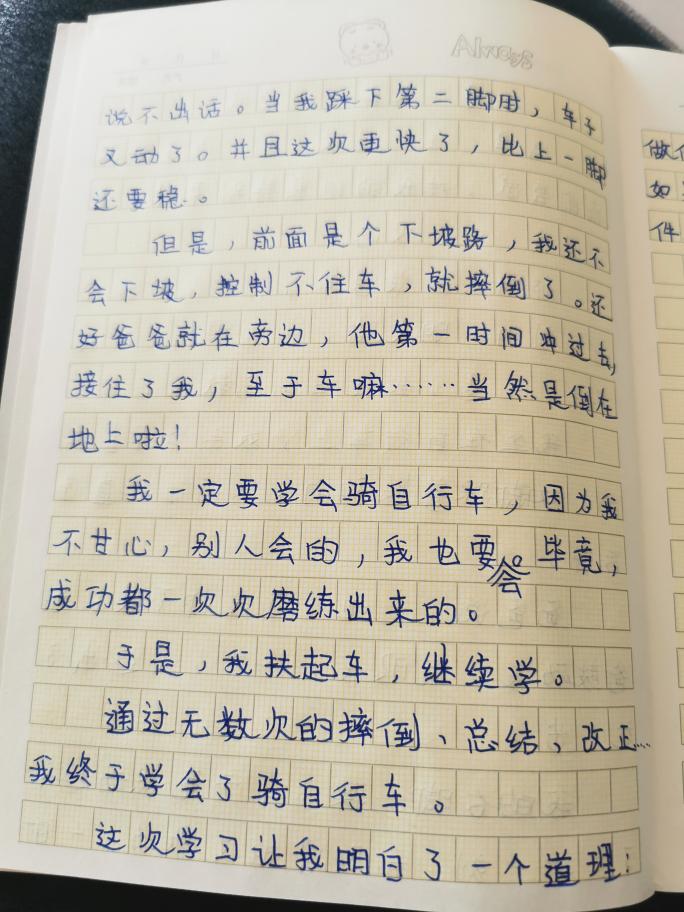 Always
说不出话。当我踩下第二脚时，车子
又动了。并且这次更快了，比上一脚
还要稳。
但是，前面是个下坡路，我还不
会下坡，控制不住车，就摔倒了。还
好爸爸就在旁边，他第一时间冲过去，
接住了我，至于车嘛……当然是倒在
地上啦！
我一定要学会骑自行车，因为我
不甘心，别人会的，我也要会。毕竟，
成功都一次次磨练出来的。
于是，我扶起车，继续学。
通过无数次的摔倒、总结、改正……
我终于学会了骑自行车。
这次学习让我明白了一个道理：
做
如
件